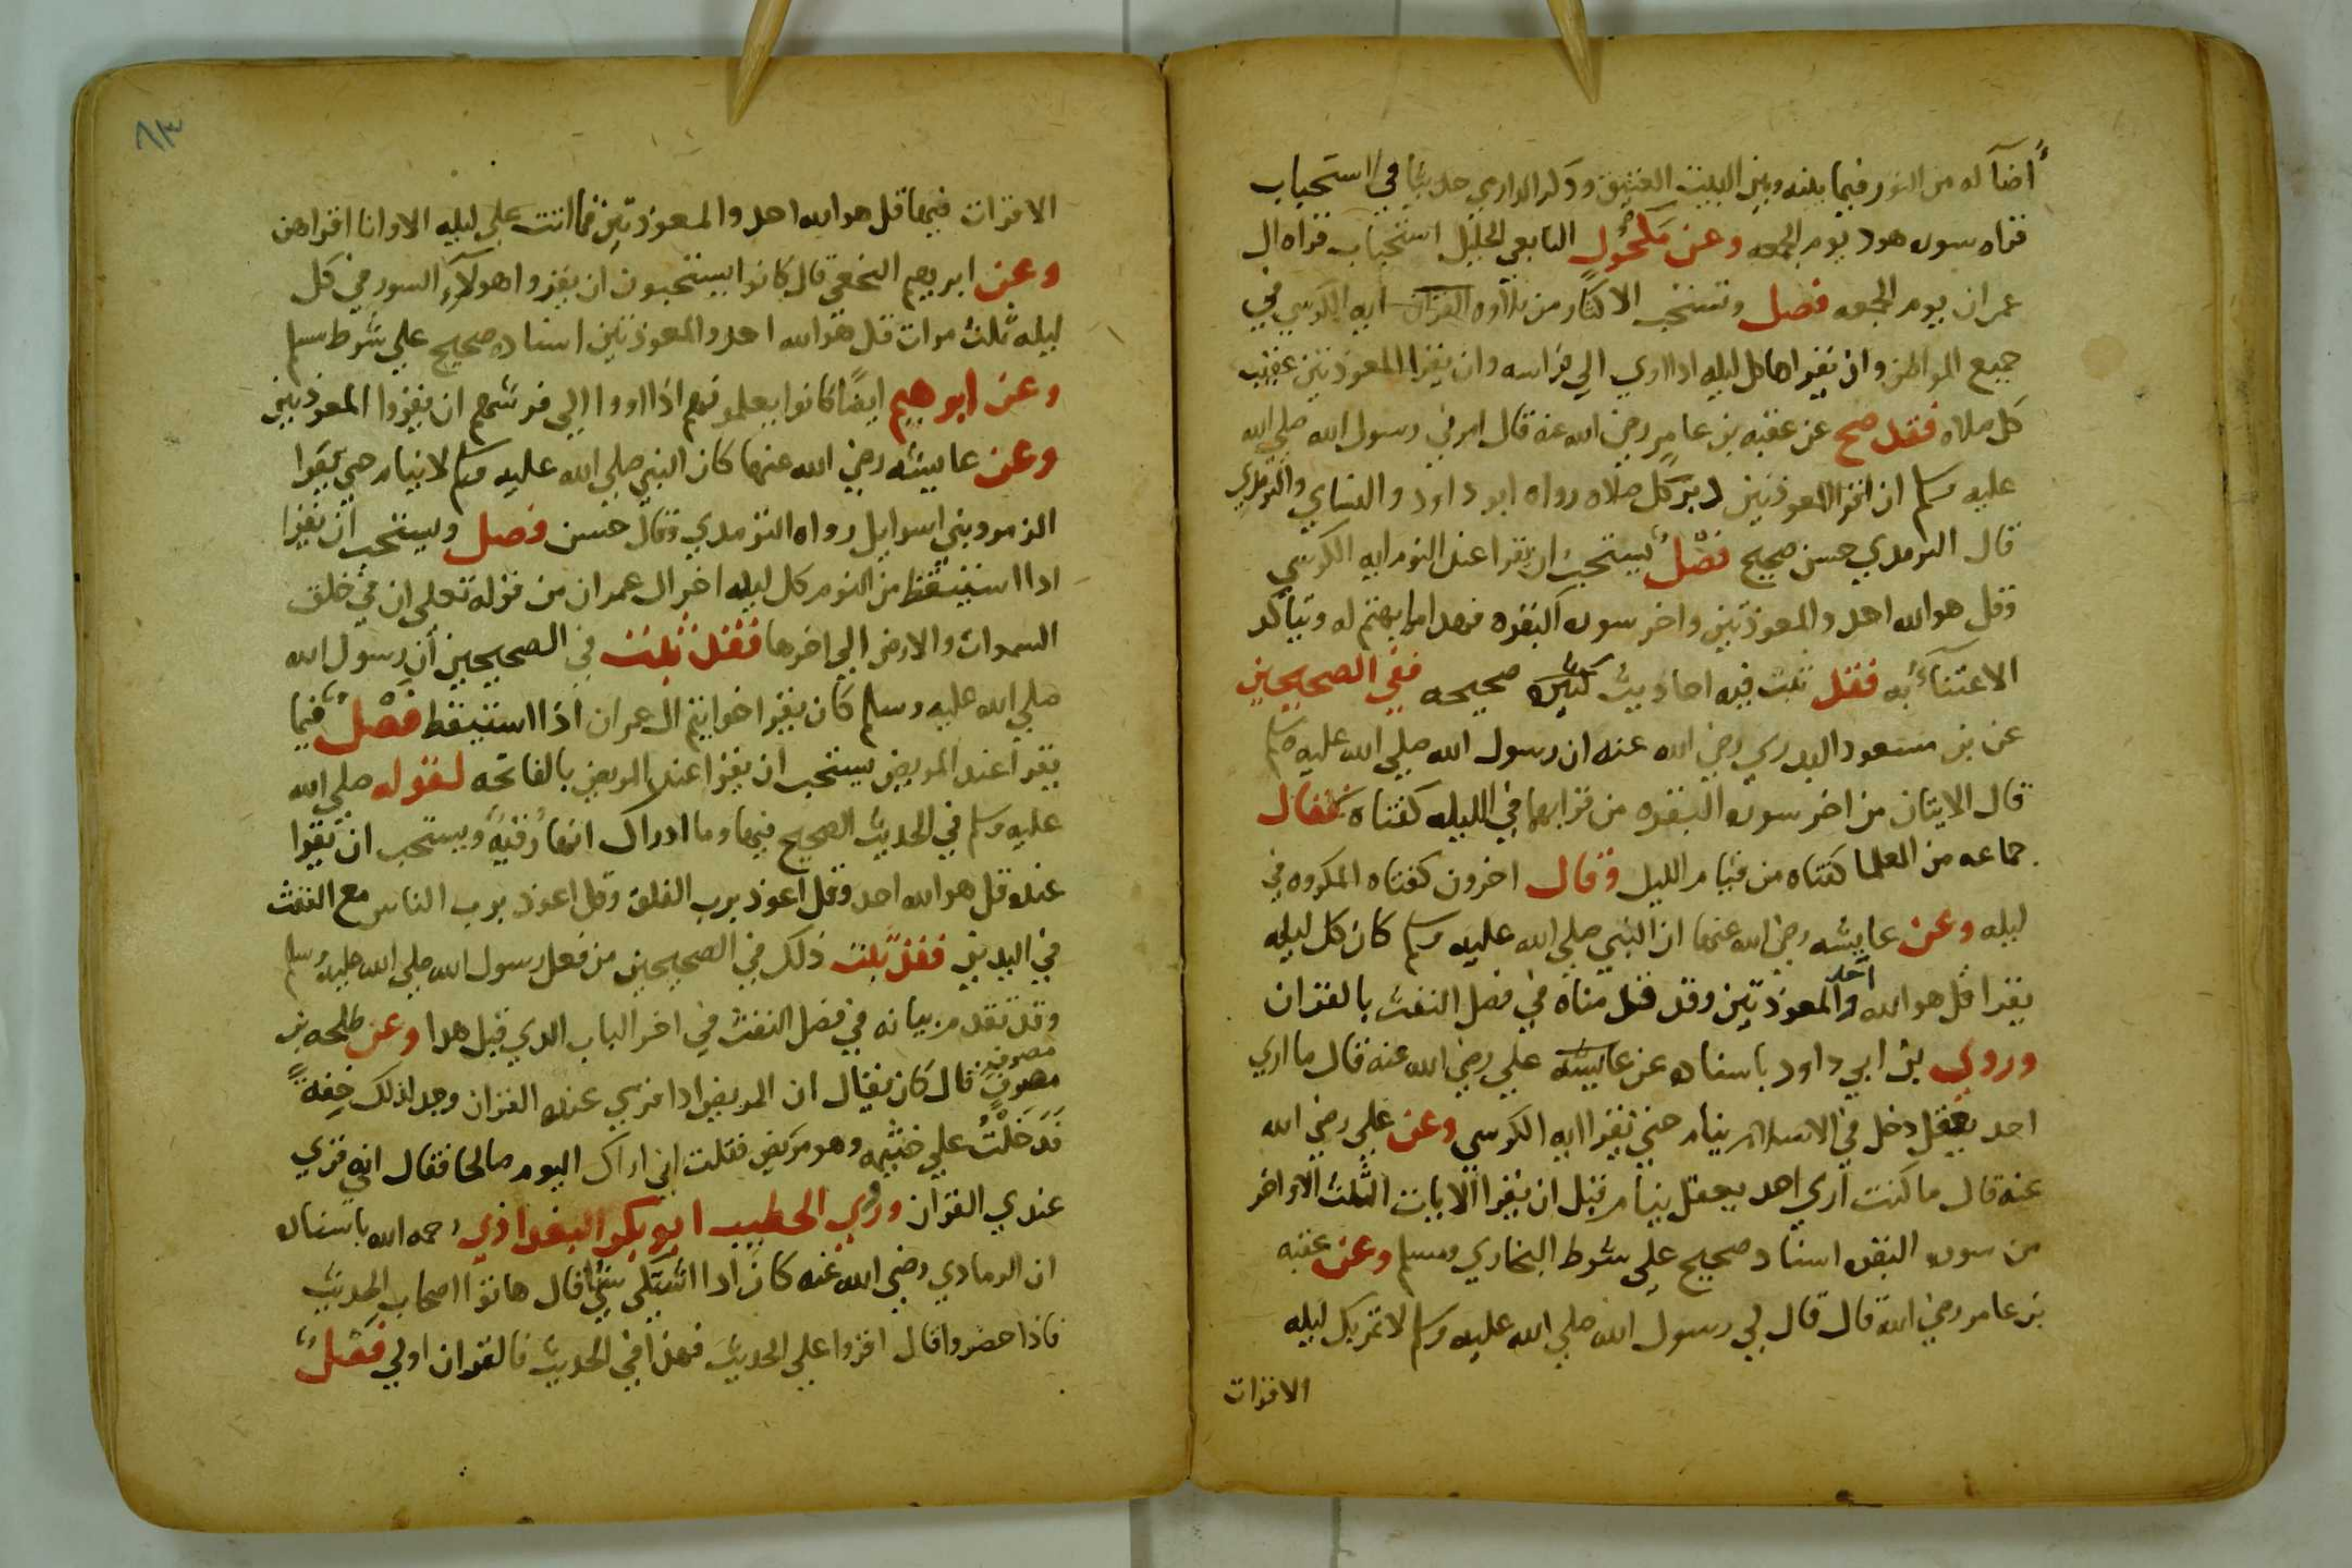 اضآ له من النور فيما بينه وبين البيت العتيق وذكر الدارمي حديثا في استحباب
قراه سوره هود يوم الجمعه وعن مكحول التابعي الجليل استحباب قراه ال
عمران يوم الجمعه فصل وتستحب الاكثار من تلاوه القران ايه الكرسي في
جميع المواطن وان يقراها كل ليله اذا اوي الي فراسه وان يقرا المعوذتين عقيب
كل صلاه فقد صح عن عقبه بن عامر رضي الله عنه قال امرني رسول الله صلي الله
عليه وسلم ان اقرا المعوذتين دبر كل صلاه رواه ابو داود والنساي والترمذي
قال الترمدي حسن صحيح فصل يستحب ان يقرا عند النوم ايه الكرسي
وقل هو الله احد والمعوذتين واخر سوره البقره فهدا مما يهتم له ويتأكد
الاعتنآء به فقد ثبت فيه احاديث كثيره صحيحه ففي الصحيحين
عن بن مسعود البدري رضي الله عنه ان رسول الله صلي الله عليه وسلم
قال الايتان من اخر سوره البقره من قرا بهما في الليله كفتاه فقال
جماعه من العلما كفتاه من قيام الليل وقال اخرون كفتاه المكروه في
ليله وعن عايشه رضي الله عنها ان النبي صلي الله عليه وسلم كان كل ليله
يقرا قل هو الله احد والمعوذتين وقد قدمناه في فصل النفث بالقران
وروي بن ابي داود باسناده عن عايشه علي رضي الله عنه قال ما اري
احد يعقل دخل في الاسلام ينام حتي يقرا ايه الكرسي وعن علي رضي الله
عنه قال ما كنت اري احد يعقل ينام قبل ان يقرا الايات الثلث الاواخر
من سوره البقره اسناد صحيح علي شرط البخاري ومسلم وعن عقبه
بن عامر رضي الله قال قال لي رسول الله صلي الله عليه وسلم لا تمر بك ليله
الا قرات
٨٣
الا قرات فيها قل هو الله احد والمعوذتين فما اتت علي ليله الا وانا اقراهن
وعن ابرهيم النخعي قال كانوا يستحبون ان يقروا هولآء السور في كل
ليله ثلث مرات قل هو الله احد والمعوذتين اسناده صحيح علي شرط مسلم
وعن ابرهيم ايضًا كانوا يعلمونهم اذا اووا الي فرشهم ان يقروا المعوذتين
وعن عايشه رضي الله عنها كان النبي صلي الله عليه وسلم لا ينام حتي يقرا
الزمر وبني اسرايل رواه الترمدي وقال حسن فصل ويستحب ان يقرا
اذا استيقظ من النوم كل ليله اخر ال عمران من قوله تعلي ان في خلق
السموات والارض الي اخرها فقد ثبت في الصحيحين ان رسول الله
صلي الله عليه وسلم كان يقرا خواتيم ال عمران اذا استيقظ فصل فيما
يقرا عند المريض يستحب ان يقرا عند المريض بالفاتحه لقوله صلي الله
عليه وسلم في الحديث الصحيح فيها وما ادراك انها رقيه ويستحب ان يقرا
عنده قل هو الله احد وقل اعوذ برب الفلق وقل اعوذ برب الناس مع النفث
في اليدين فقد ثبت ذلك في الصحيحين من فعل رسول الله صلي الله عليه وسلم
وقد تقدم بيانه في فصل النفث في اخر الباب الدي قبل هدا وعن طلحه بن
مصرف
مصرف قال كان يقال ان المريض اذا قري عنده القران وجد لذلك خفة
فدخلت علي خثيمه وهو مريض فقلت اني اراك اليوم صالحا فقال انه قري
عندي القرآن وروي الخطيب ابو بكر البغداذي رحمه الله باسناده
ان الرمادي رضي الله عنه كان اذا اشتكي شيا قال هاتوا اصحاب الحديث
فاذا حضروا قال اقروا علي الحديث فهذا في الحديث فالقران اولي فصل